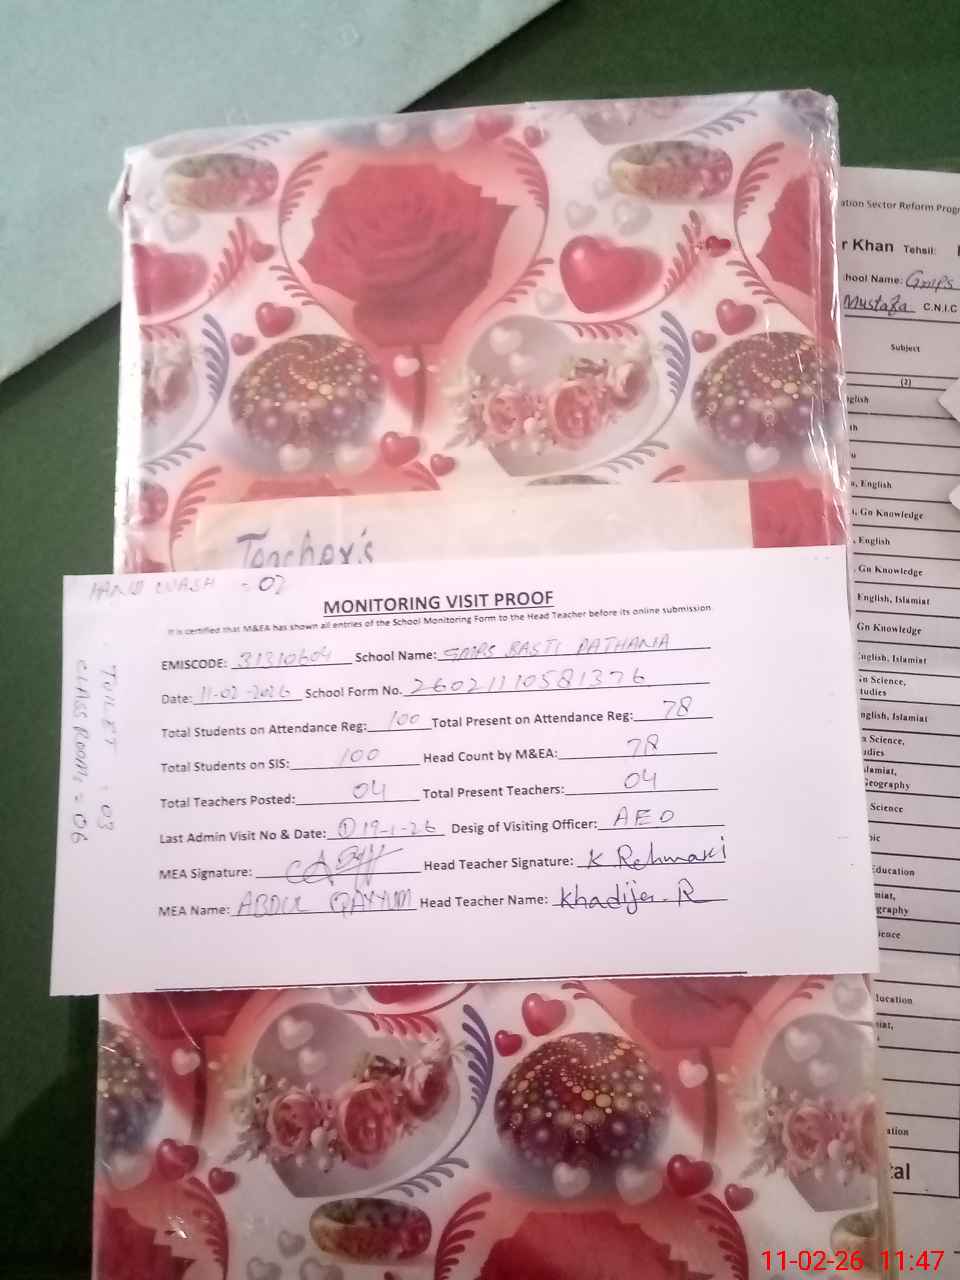 Teacher's
HAND WASH = 02
MONITORING VISIT PROOF
It is certified that M&EA has shown all entries of the School Monitoring Form to the Head Teacher before its online submission.
EMISCODE: 31310604 School Name: GMPS BASTI PATHANIA
Date: 11-02-2026 School Form No. 26021110581376
Total Students on Attendance Reg: 100 Total Present on Attendance Reg: 78
Total Students on SIS: 100 Head Count by M&EA: 78
Total Teachers Posted: 04 Total Present Teachers: 04
Last Admin Visit No & Date: ① 19-1-26 Desig of Visiting Officer: AEO
MEA Signature: Head Teacher Signature: K Rehman
MEA Name: ABDUL QAYYUM Head Teacher Name: Khadija. R
TOILET : 03
CLASS ROOMS = 06
ation Sector Reform Progr
r Khan Tehsil:
hool Name: GMPS
Mustafa C.N.I.C
Subject
(2)
nglish
th
u
a, English
i, Gn Knowledge
, English
, Gn Knowledge
English, Islamiat
Gn Knowledge
nglish, Islamiat
in Science,
tudies
nglish, Islamiat
a Science,
udies
slamiat,
Geography
Science
bic
Education
miat,
graphy
ience
ducation
niat,
ation
tal
11-02-26 11:47